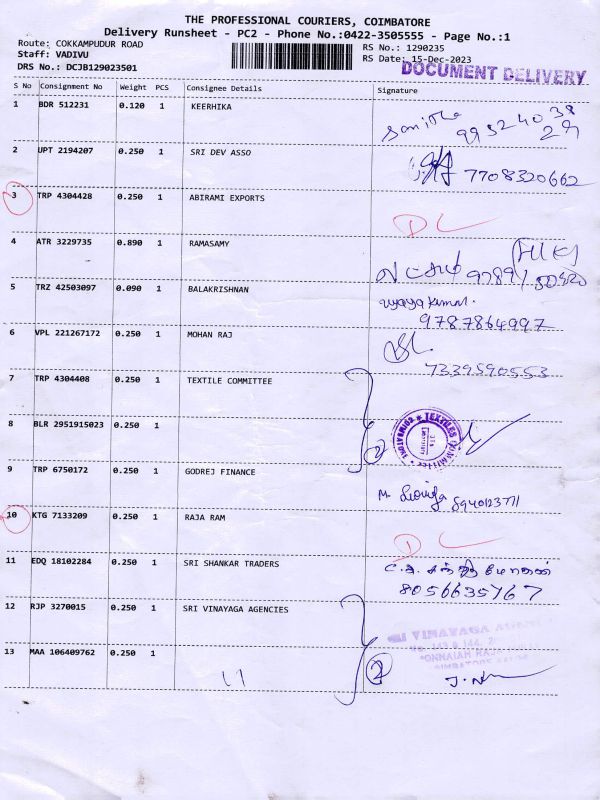 THE PROFESSIONAL COURIERS, COIMBATORE
Delivery Runsheet - PC2 - Phone No.:0422-3505555 - Page No.:1
Route: COKKAMPUDUR ROAD RS No.: 1290235
Staff: VADIVU RS Date: 15-Dec-2023
DRS No.: DCJB129023501 DOCUMENT DELIVERY
S No Consignment No Weight PCS Consignee Details Signature
1 BDR 512231 0.120 1 KEERHIKA
2 UPT 2194207 0.250 1 SRI DEV ASSO 7708320662
3 TRP 4304428 0.250 1 ABIRAMI EXPORTS DL
4 ATR 3229735 0.890 1 RAMASAMY
5 TRZ 42503097 0.090 1 BALAKRISHNAN Vijaya Kumar.
9787864997
6 VPL 221267172 0.250 1 MOHAN RAJ
7339590553
7 TRP 4304408 0.250 1 TEXTILE COMMITTEE
8 BLR 2951915023 0.250 1 2
9 TRP 6750172 0.250 1 GODREJ FINANCE 8940123771
10 KTG 7133209 0.250 1 RAJA RAM DL
11 EDQ 18102284 0.250 1 SRI SHANKAR TRADERS
8056635767
12 RJP 3270015 0.250 1 SRI VINAYAGA AGENCIES
13 MAA 106409762 0.250 1 2
11